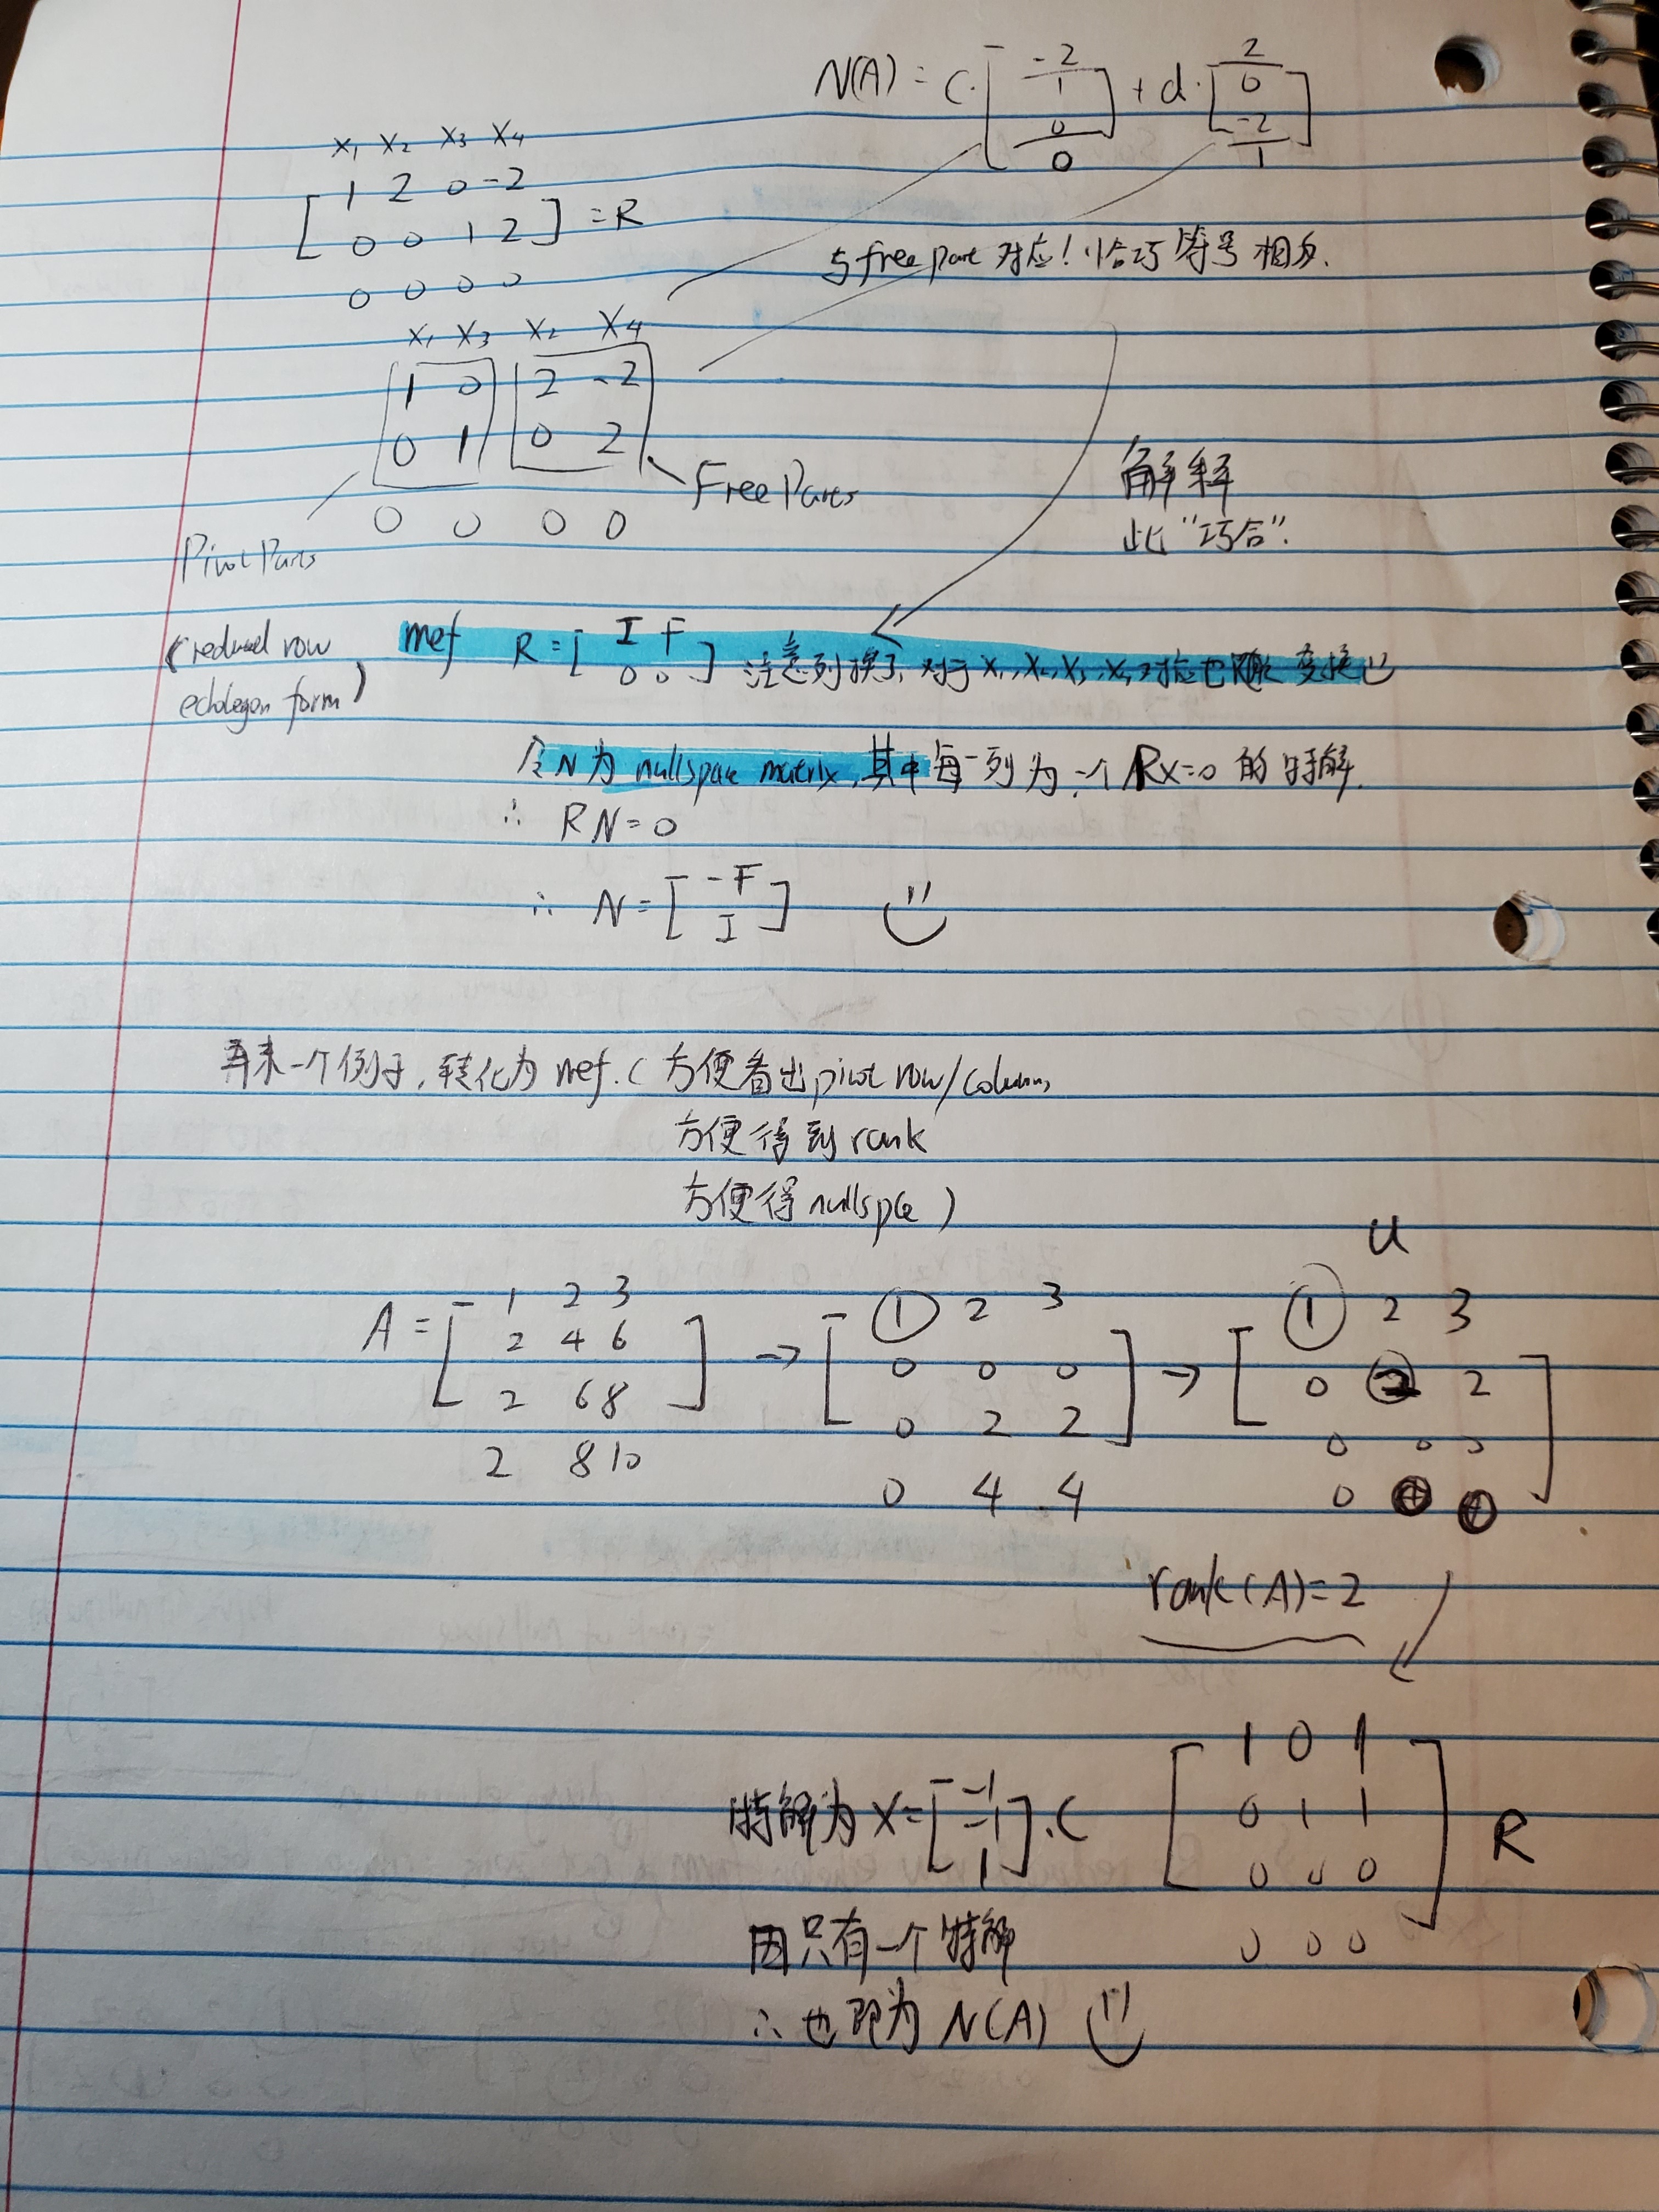 N(A) = C·[-2 1 0 0] + d·[2 0 -2 1]
x₁ x₂ x₃ x₄
1 2 0 -2
0 0 1 2 ] = R
0 0 0 0
与free part 对应！恰巧符号相反.
x₁ x₃ x₂ x₄
1 0 2 -2
0 1 0 2
Free Parts
0 0 0 0
Pivot Parts
解释
此"巧合".
(reduced row
echelegon form)
rref R = [ I F
0 0 ] 注意列换了, 对于x₁,x₂,x₃,x₄对应也随之变换
令N为 nullspace matrix, 其中每一列为一个 Rx=0 的特解.
∴ RN=0
∴ N = [ -F
I ]
再来一个例子, 转化为rref. (方便看出pivot row/column,
方便得到rank
方便得nullspce)
U
A = [ 1 2 3 → ① 2 3 → ① 2 3
2 4 6 0 0 0 0 ② 2
2 6 8 0 2 2 0 0 0
2 8 10 ] 0 4 4 0
rank(A)=2
1 0 1
0 1 1 R
0 0 0
0 0 0
特解为 X = [-1 -1 1]·C
因只有一个特解
∴ 也即为 N(A)